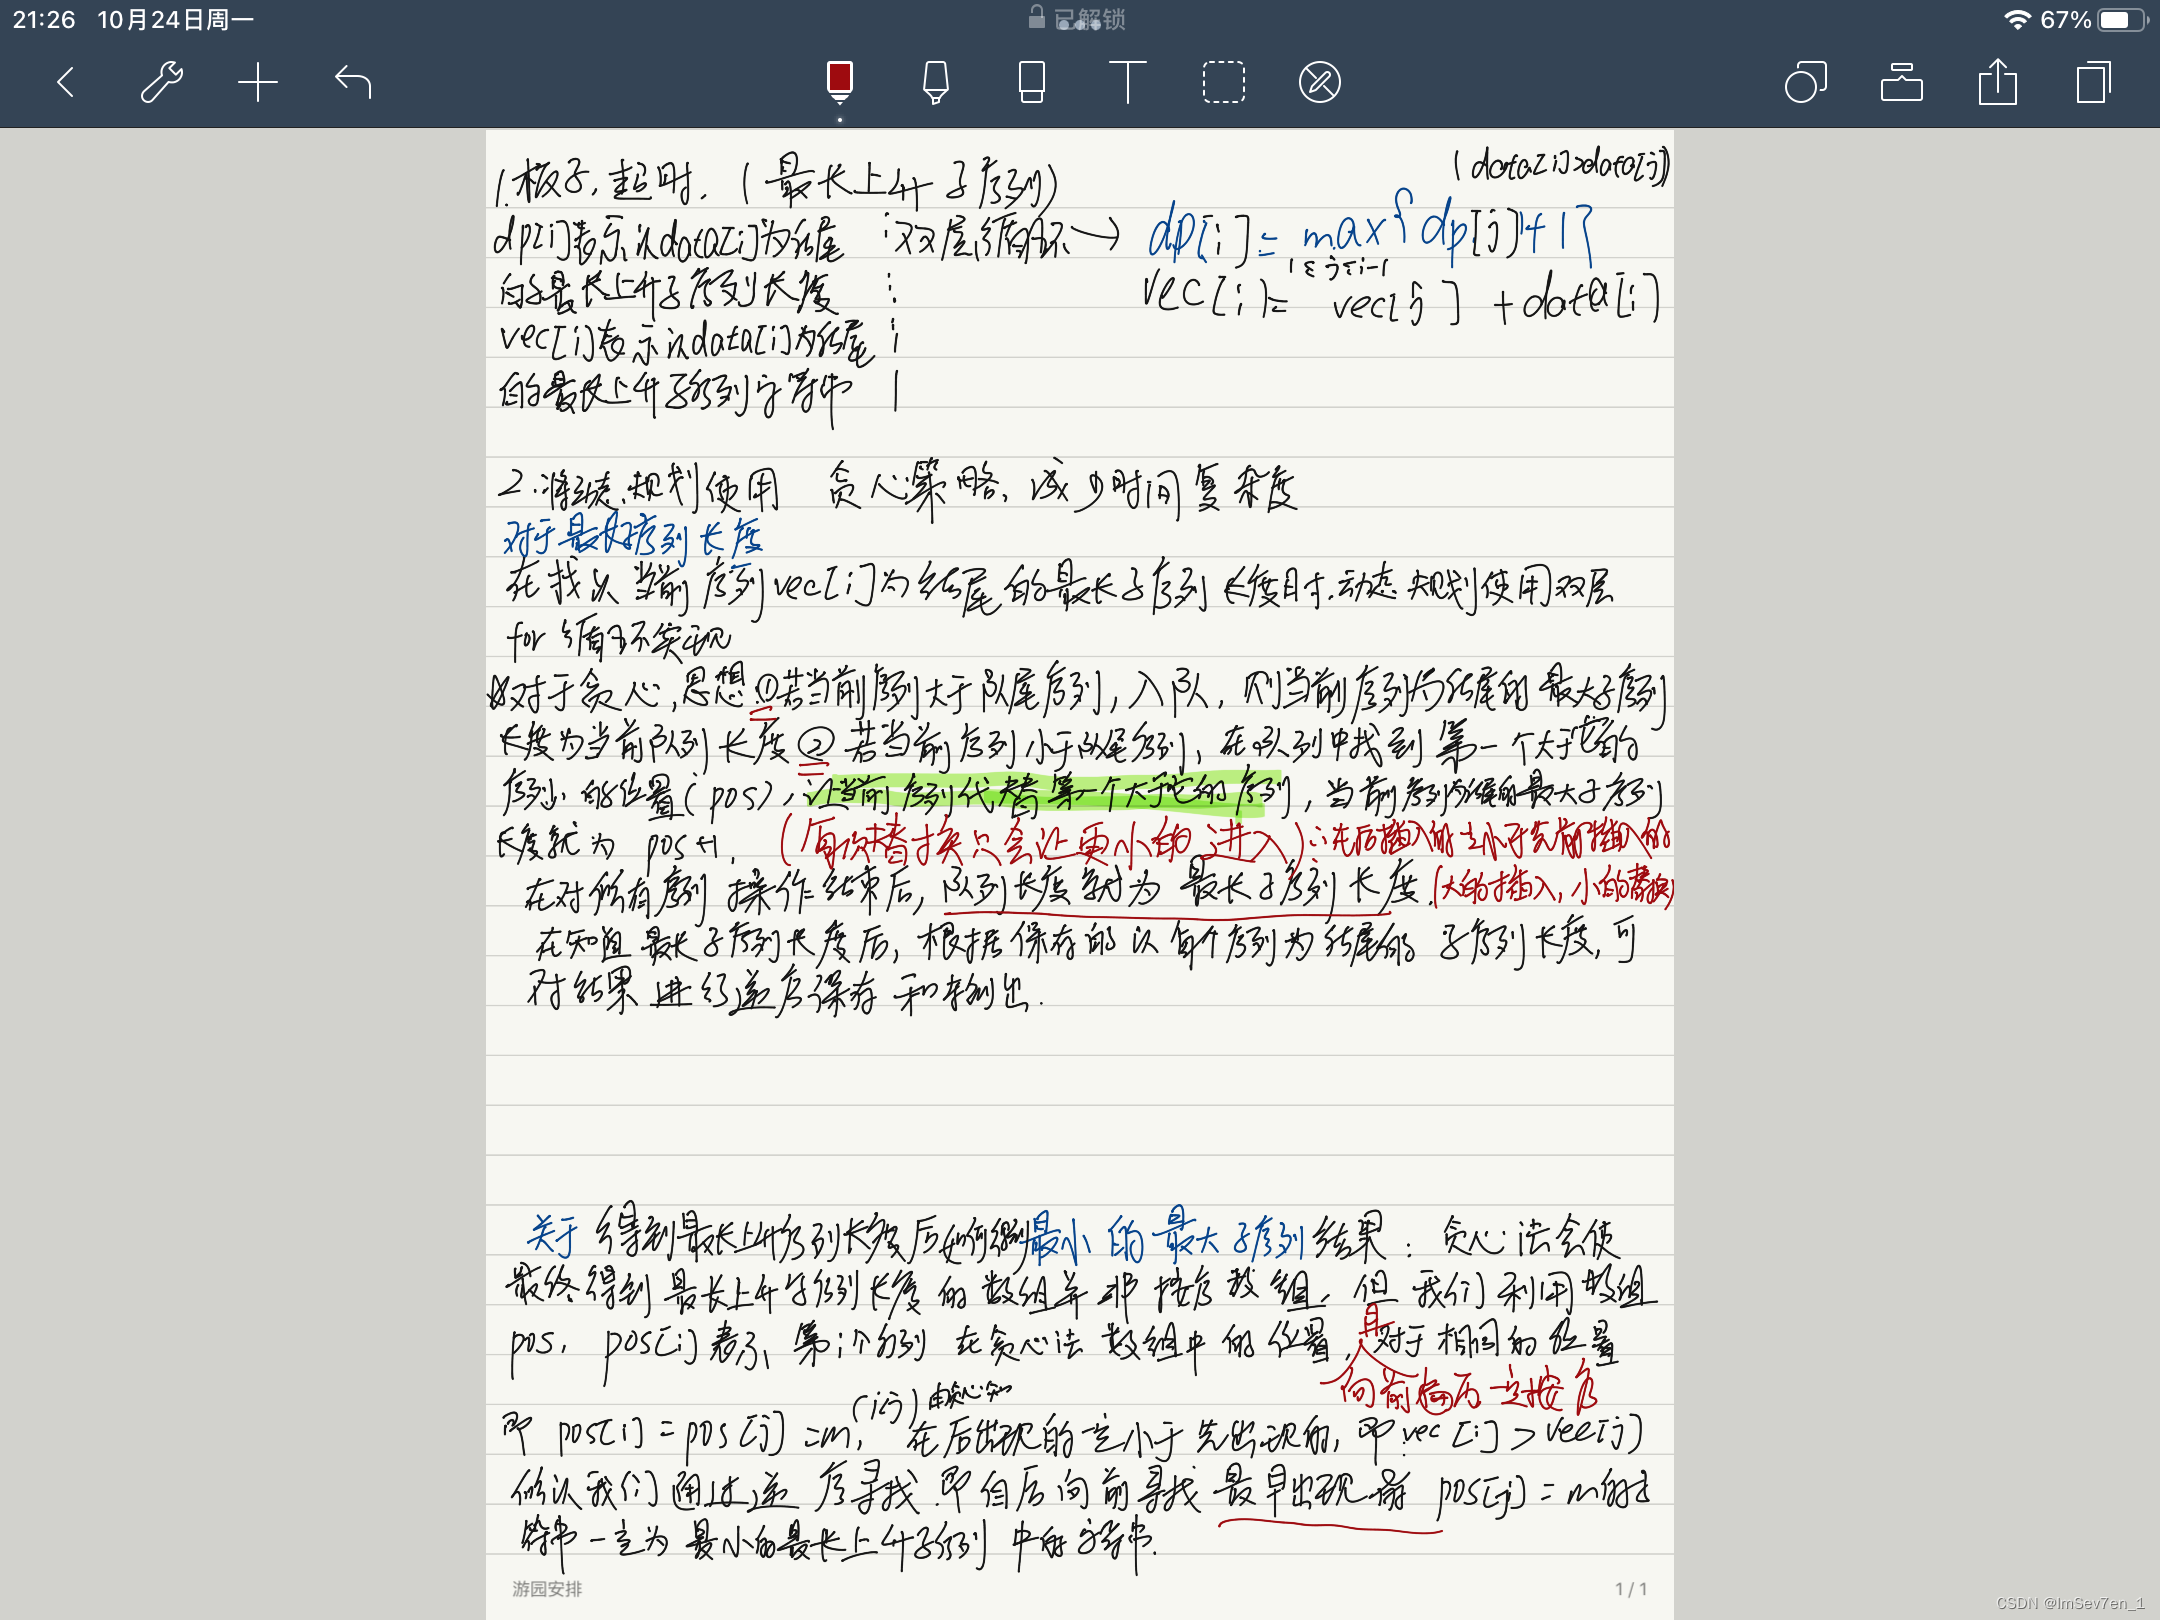 21:26 10月24日周一
已解锁
67%
1.板子,超时.(最长上升子序列)
(data[i]>data[j])
dp[i]表示以data[i]为结尾
的最长上升子序列长度
vec[i]表示以data[i]为结尾
的最长上升子序列字符串
双层循环→ dp[i]= max{dp[j]+1}
1≤j≤i-1
vec[i]= vec[j] +data[i]
2.将动态规划使用 贪心策略,减少时间复杂度
对于最长子序列长度
在找以当前序列vec[i]为结尾的最长子序列长度时.动态规划使用双层
for循环实现
对于贪心,思想①若当前序列大于队尾序列,入队,则当前序列为结尾的最大子序列
长度为当前队列长度②若当前序列小于队尾序列,在队列中找到第一个大于它的
序列的位置(pos),让当前序列代替第一个大于它的序列,当前序列为结尾的最大子序列
长度就为pos+1, (每次替换只会让更小的进入)∴先后插入的一定小于先前插入的
在对所有序列操作结束后,队列长度就为最长子序列长度.(大的插入,小的替换)
在知道最长子序列长度后,根据保存的以每个序列为结尾的子序列长度,可
对结果进行逆序保存和输出.
关于得到最长上升序列长度后如何得到最小的最大子序列结果:贪心法会使
最终得到最长上升子序列长度的数组并非按序数组,但我们利用数组
pos, pos[i]表示第i个序列在贪心法数组中的位置,对于相同的位置
且
向前遍历一定按序
即pos[i]=pos[j]=m, 在后出现的一定小于先出现的,即vec[i]>vec[j]
(i<j) 由贪心知
所以我们通过逆序寻找.即自后向前寻找最早出现 pos[j]=m的字
符串一定为最小的最长上升子序列中的字符串.
游园安排
1/1
CSDN @ImSev7en_1